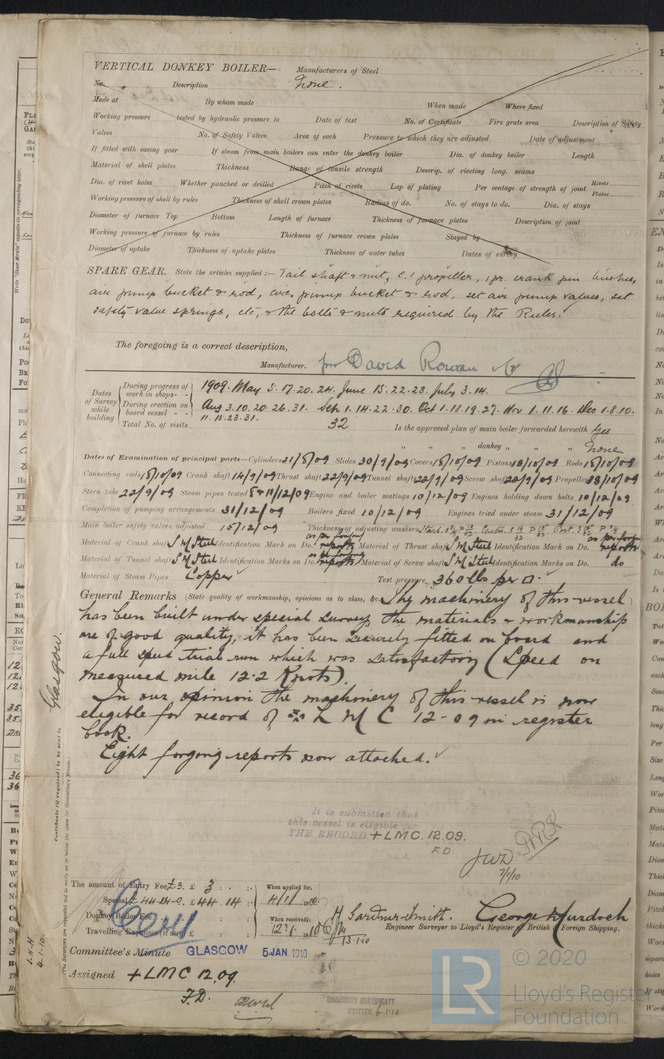 VERTICAL DONKEY BOILER— Manufacturers of Steel
No. Description None.
Made at By whom made When made Where fixed
Working pressure tested by hydraulic pressure to Date of test No. of Certificate Fire grate area Description of Safety
Valves No. of Safety Valves Area of each Pressure to which they are adjusted Date of adjustment
If fitted with easing gear If steam from main boilers can enter the donkey boiler Dia. of donkey boiler Length
Material of shell plates Thickness Range of tensile strength Descrip. of riveting long. seams
Dia. of rivet holes Whether punched or drilled Pitch of rivets Lap of plating Per centage of strength of joint Rivets Plates
Working pressure of shell by rules Thickness of shell crown plates Radius of do. No. of stays to do. Dia. of stays
Diameter of furnace Top Bottom Length of furnace Thickness of furnace plates Description of joint
Working pressure of furnace by rules Thickness of furnace crown plates Stayed by
Diameter of uptake Thickness of uptake plates Thickness of water tubes Dates of survey
SPARE GEAR. State the articles supplied:— Tail shaft & nut, C.I propeller, 1 pr. crank pin bushes,
air pump bucket & rod, circ. pump bucket & rod, set air pump valves, set
safety valve springs, etc, & the bolts & nuts required by the Rules.
The foregoing is a correct description,
Manufacturer. pro David Rowan & Co
Dates of Survey while building
During progress of work in shops - - 1909. May 5.17.20.24. June 15.22.23. July 3.14.
During erection on board vessel - - Aug 3.10.20.26.31. Sep 1.14.22.30. Oct 1.18.19.27. Nov 1.11.16. Dec 1.8.10.
11.15.23.31.
Total No. of visits 32 Is the approved plan of main boiler forwarded herewith Yes
" " " donkey " " " None
Dates of Examination of principal parts—Cylinders 31/8/09 Slides 30/9/09 Covers 18/10/09 Pistons 18/10/09 Rods 18/10/09
Connecting rods 18/10/09 Crank shaft 14/9/09 Thrust shaft 22/9/09 Tunnel shafts 22/9/09 Screw shaft 22/9/09 Propeller 18/10/09
Stern tube 22/9/09 Steam pipes tested 8 & 11/12/09 Engine and boiler seatings 10/12/09 Engines holding down bolts 10/12/09
Completion of pumping arrangements 31/12/09 Boilers fixed 10/12/09 Engines tried under steam 31/12/09
Main boiler safety valves adjusted 15/12/09 Thickness of adjusting washers
Material of Crank shaft S M Steel Identification Mark on Do. as per forging reports Material of Thrust shaft S M Steel Identification Mark on Do. as per forging reports
Material of Tunnel shafts S M Steel Identification Marks on Do. as per forging reports. Material of Screw shafts S M Steel Identification Marks on Do. do
Material of Steam Pipes Copper Test pressure 360 lbs per □"
General Remarks (State quality of workmanship, opinions as to class, &c. The machinery of this vessel
has been built under special survey, the materials & workmanship
are of good quality, it has been securely fitted on board and
a full speed trial run which was satisfactory (Speed on
measured mile 12.2 Knots).
In our opinion the machinery of this vessel is now
eligible for record of + L M C 12-09 in register
book.
Eight forging reports now attached.
Glasgow.
It is submitted that
this vessel is eligible for
THE RECORD + LMC. 12.09.
F.D
JWD
7/1/10
The amount of Entry Fee £3. £ 3 : : When applied for,
Special £ 44.14.0. £ 44. 14 : 4/1/10
Donkey Boiler Fee When received,
Travelling Expenses 12.1.10
13.1.10
H Gardner-Smith. George Murdoch
Engineer Surveyor to Lloyd's Register of British & Foreign Shipping.
Committee's Minute GLASGOW 5 JAN. 1910
Assigned + LMC 12,09.
F.D.
MACHINERY CERTIFICATE
WRITTEN 6.1.10
© 2020
LR
Lloyd's Register
Foundation